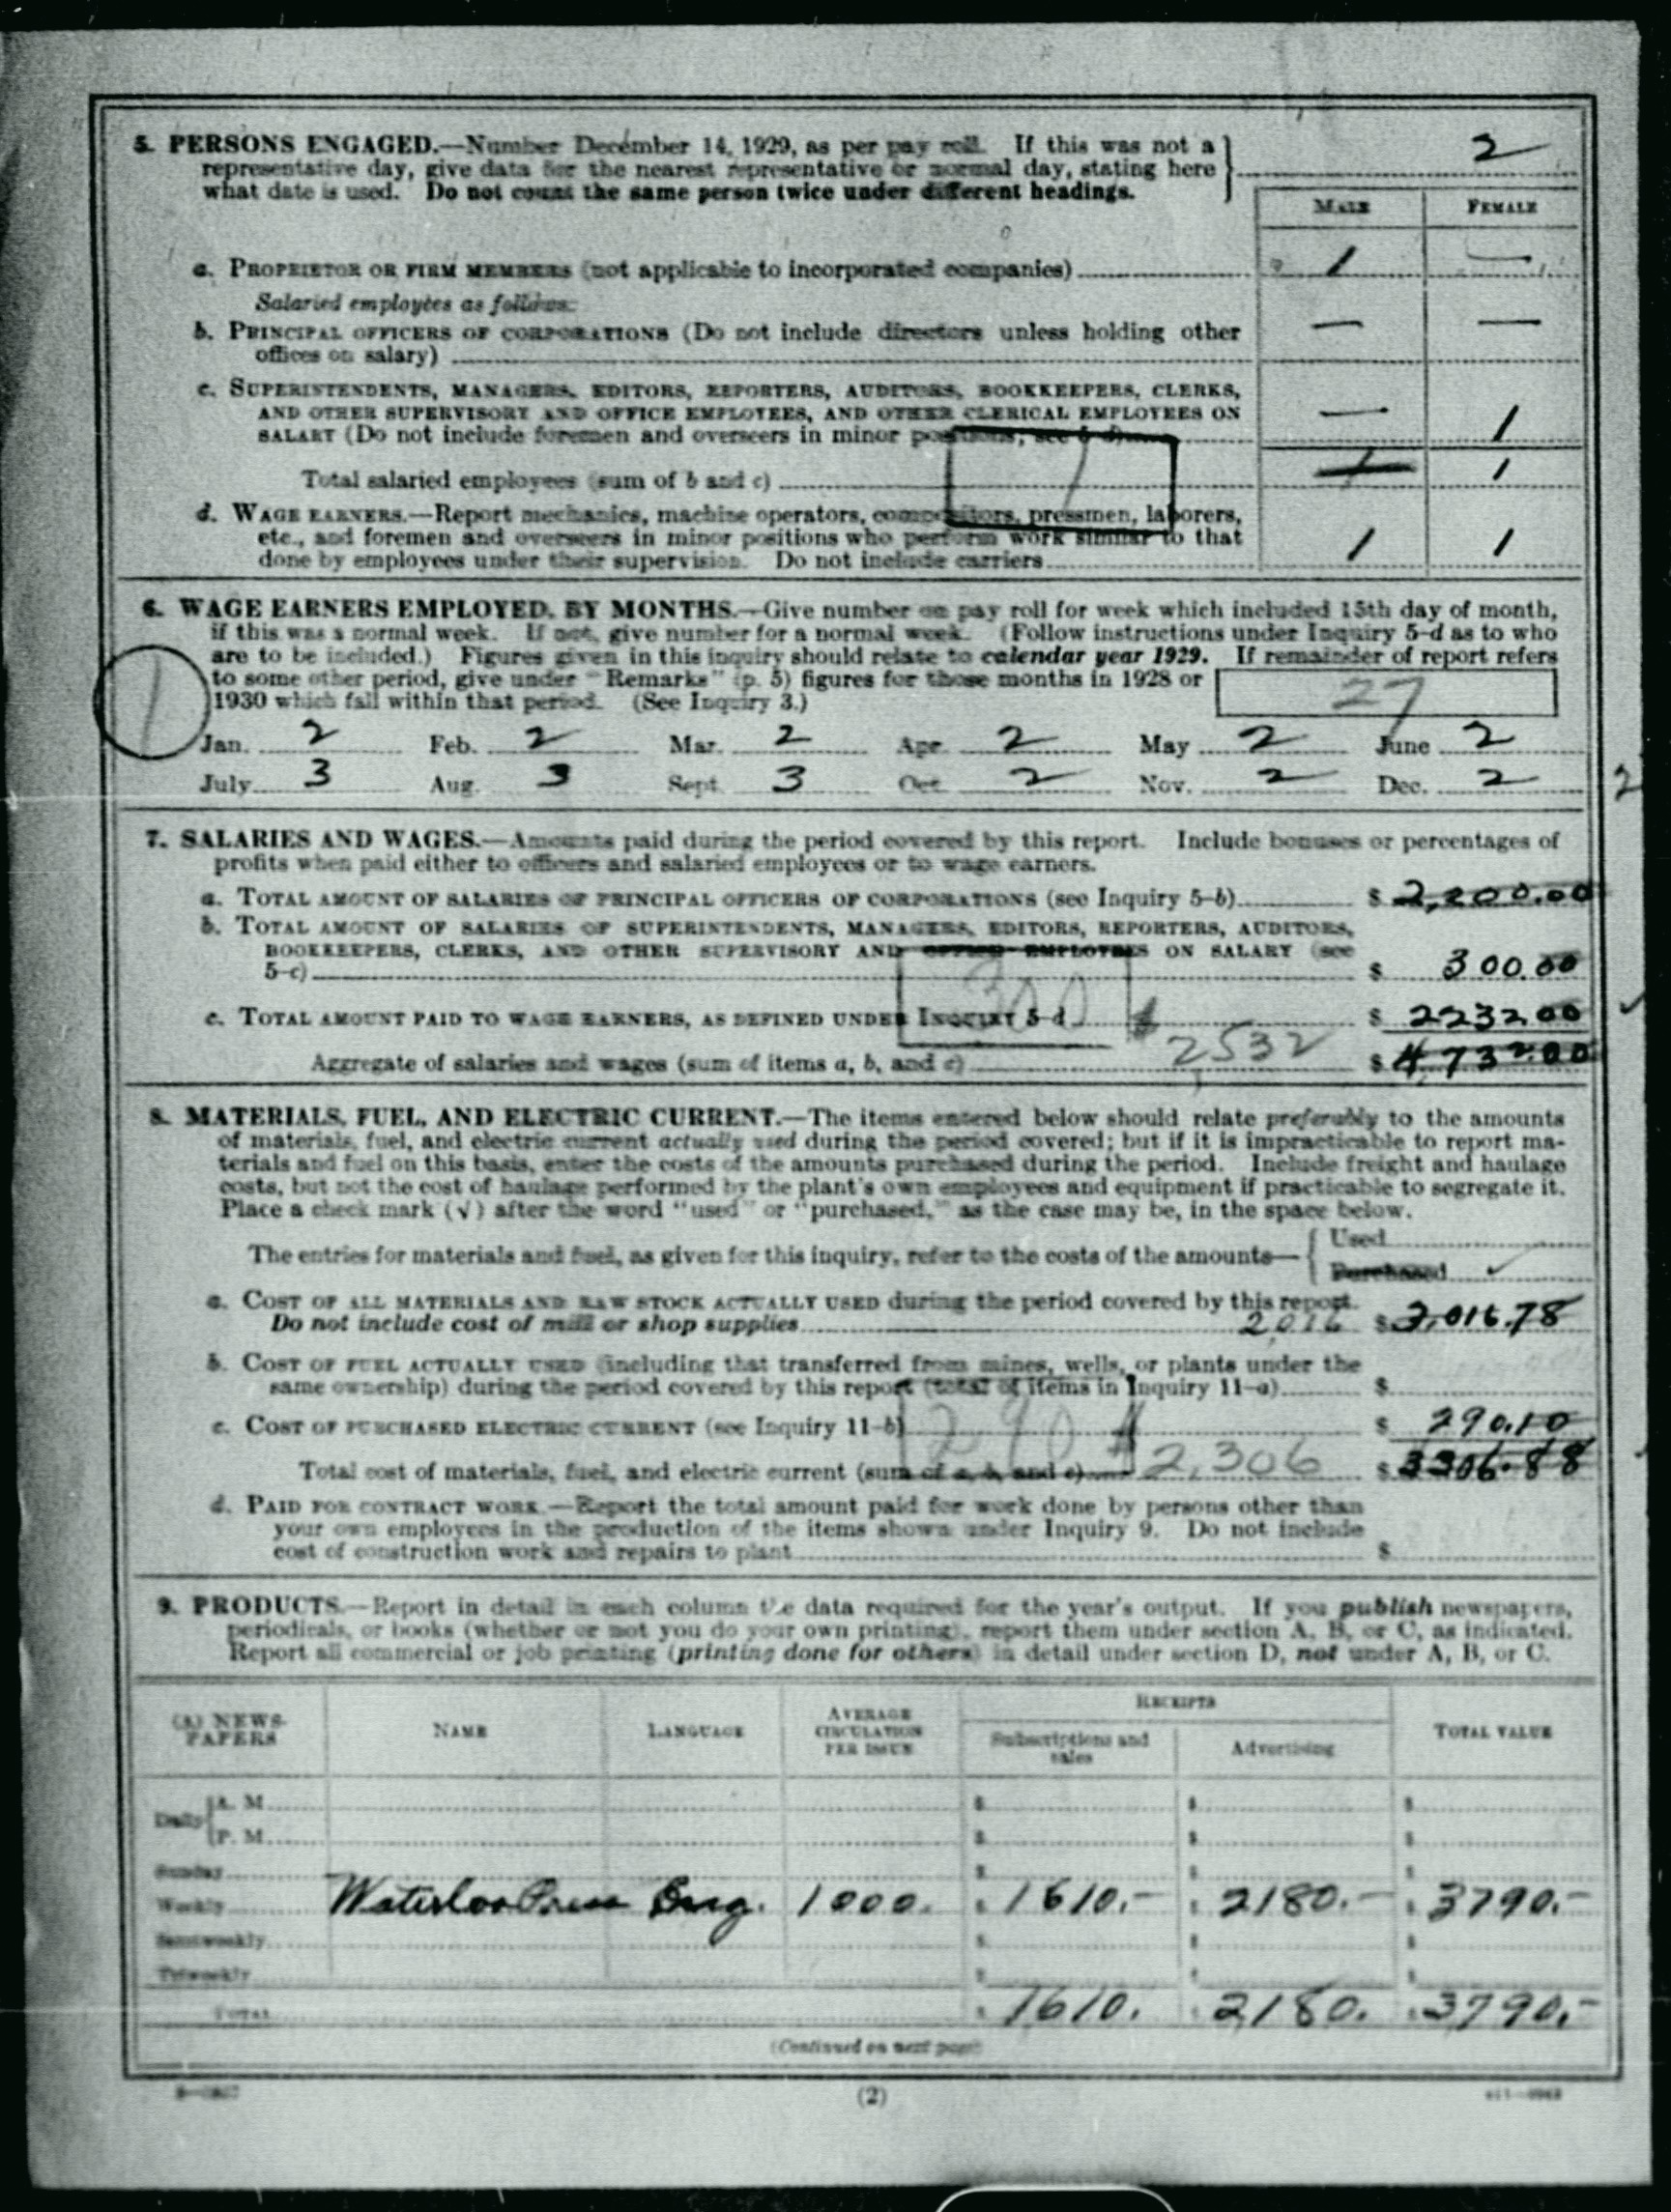 2
5. PERSONS ENGAGED.—Number December 14, 1929, as per pay roll. If this was not a
representative day, give data for the nearest representative or normal day, stating here
what date is used. Do not count the same person twice under different headings.
MALE FEMALE
a. PROPRIETOR OR FIRM MEMBERS (not applicable to incorporated companies) 1 —
Salaried employees as follows:
b. PRINCIPAL OFFICERS OF CORPORATIONS (Do not include directors unless holding other
offices on salary) — —
c. SUPERINTENDENTS, MANAGERS, EDITORS, REPORTERS, AUDITORS, BOOKKEEPERS, CLERKS,
AND OTHER SUPERVISORY AND OFFICE EMPLOYEES, AND OTHER CLERICAL EMPLOYEES ON
SALARY (Do not include foremen and overseers in minor positions; see 5-d) — 1
Total salaried employees (sum of b and c) 1 1 1
d. WAGE EARNERS.—Report mechanics, machine operators, compositors, pressmen, laborers,
etc., and foremen and overseers in minor positions who perform work similar to that
done by employees under their supervision. Do not include carriers 1 1
6. WAGE EARNERS EMPLOYED, BY MONTHS.—Give number on pay roll for week which included 15th day of month,
if this was a normal week. If not, give number for a normal week. (Follow instructions under Inquiry 5-d as to who
are to be included.) Figures given in this inquiry should relate to calendar year 1929. If remainder of report refers
to some other period, give under "Remarks" (p. 5) figures for those months in 1928 or
1930 which fall within that period. (See Inquiry 3.) 27
1
Jan. 2 Feb. 2 Mar. 2 Apr. 2 May 2 June 2
July 3 Aug. 3 Sept. 3 Oct. 2 Nov. 2 Dec. 2 2
7. SALARIES AND WAGES.—Amounts paid during the period covered by this report. Include bonuses or percentages of
profits when paid either to officers and salaried employees or to wage earners.
a. TOTAL AMOUNT OF SALARIES OF PRINCIPAL OFFICERS OF CORPORATIONS (see Inquiry 5-b) $ 2,200.00
b. TOTAL AMOUNT OF SALARIES OF SUPERINTENDENTS, MANAGERS, EDITORS, REPORTERS, AUDITORS,
BOOKKEEPERS, CLERKS, AND OTHER SUPERVISORY AND OFFICE EMPLOYEES ON SALARY (see
5-c) $ 300.00
300
c. TOTAL AMOUNT PAID TO WAGE EARNERS, AS DEFINED UNDER INQUIRY 5-d $ 2232.00
Aggregate of salaries and wages (sum of items a, b, and c) 2532 $ 4,732.00
8. MATERIALS, FUEL, AND ELECTRIC CURRENT.—The items entered below should relate preferably to the amounts
of materials, fuel, and electric current actually used during the period covered; but if it is impracticable to report ma-
terials and fuel on this basis, enter the costs of the amounts purchased during the period. Include freight and haulage
costs, but not the cost of haulage performed by the plant's own employees and equipment if practicable to segregate it.
Place a check mark (√) after the word "used" or "purchased," as the case may be, in the space below.
The entries for materials and fuel, as given for this inquiry, refer to the costs of the amounts— Used
Purchased ✓
a. COST OF ALL MATERIALS AND RAW STOCK ACTUALLY USED during the period covered by this report.
Do not include cost of mill or shop supplies 2016 $ 3,016.78
b. COST OF FUEL ACTUALLY USED (including that transferred from mines, wells, or plants under the
same ownership) during the period covered by this report (total of items in Inquiry 11-a) $
c. COST OF PURCHASED ELECTRIC CURRENT (see Inquiry 11-b) 290 $ 290.10
Total cost of materials, fuel, and electric current (sum of a, b, and c) 2,306 $ 3306.88
d. PAID FOR CONTRACT WORK.—Report the total amount paid for work done by persons other than
your own employees in the production of the items shown under Inquiry 9. Do not include
cost of construction work and repairs to plant $
9. PRODUCTS.—Report in detail in each column the data required for the year's output. If you publish newspapers,
periodicals, or books (whether or not you do your own printing), report them under section A, B, or C, as indicated.
Report all commercial or job printing (printing done for others) in detail under section D, not under A, B, or C.
(A) NEWS-
PAPERS NAME LANGUAGE AVERAGE
CIRCULATION
PER ISSUE RECEIPTS TOTAL VALUE
Subscriptions and
sales Advertising
Daily A. M. $ $ $
P. M. $ $ $
Sunday $ $ $
Weekly Waterloo Press Eng. 1000. $ 1610.- $ 2180.- $ 3790.-
Semiweekly $ $ $
Triweekly $ $ $
TOTAL $ 1610. $ 2180. $ 3790.-
(Continued on next page)
(2)